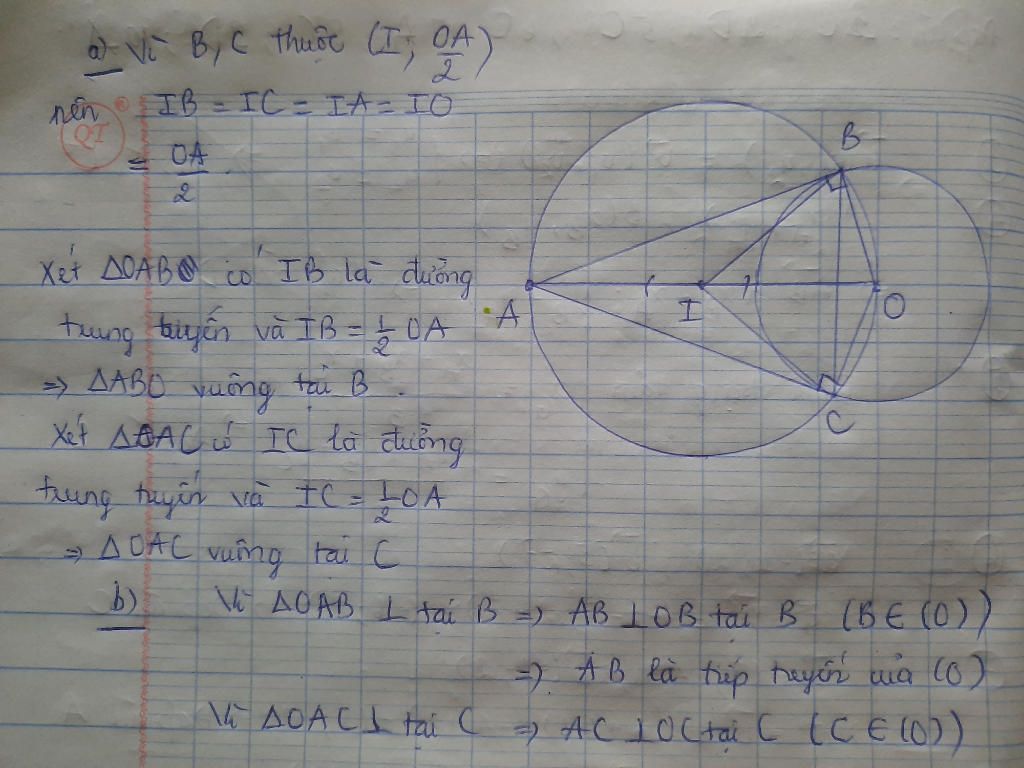 a) Vì B, C thuộc (I; OA/2)
nên IB = IC = IA = IO
= OA/2
QI
Xét ΔOAB có IB là đường
trung tuyến và IB = 1/2 OA
=> ΔABO vuông tại B.
Xét ΔOAC có IC là đường
trung tuyến và IC = 1/2 OA
=> ΔOAC vuông tại C
b) Vì ΔOAB ⊥ tại B => AB ⊥ OB tại B (B ∈ (O))
=> AB là tiếp tuyến của (O)
Vì ΔOAC ⊥ tại C => AC ⊥ OC tại C (C ∈ (O))
B
A
I
O
C